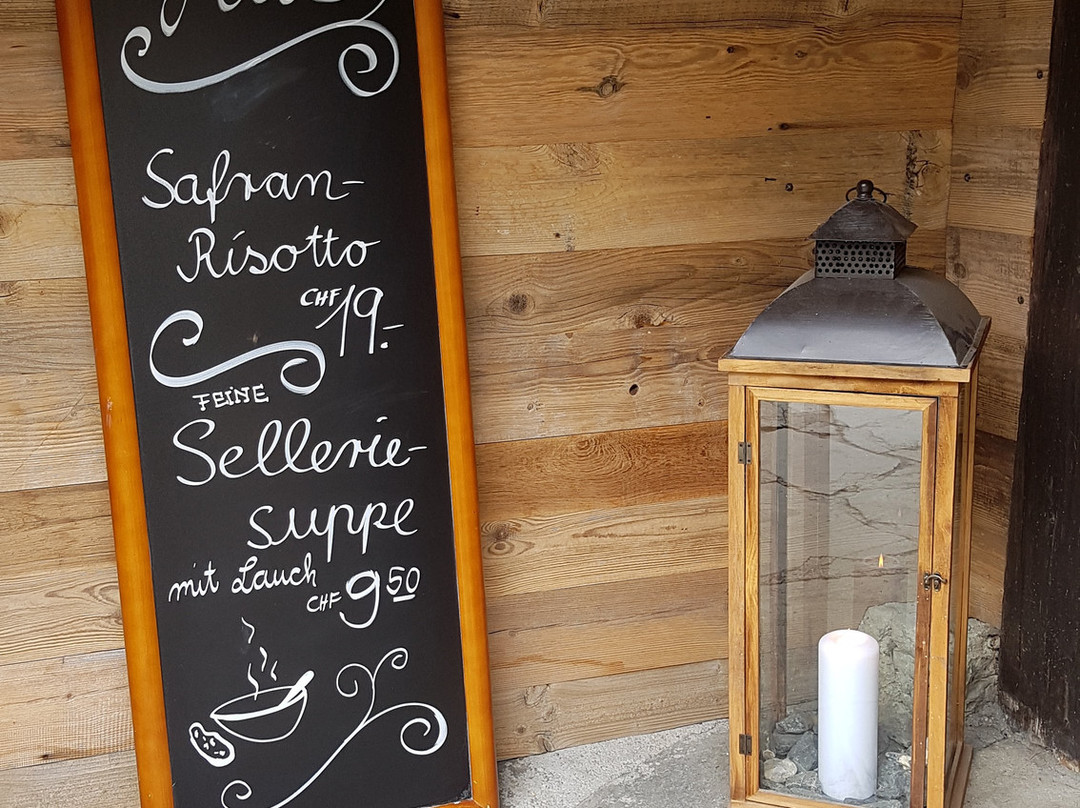 Safran-
Risotto
CHF 19.-
FEINE
Sellerie-
suppe
mit Lauch
CHF 9 50